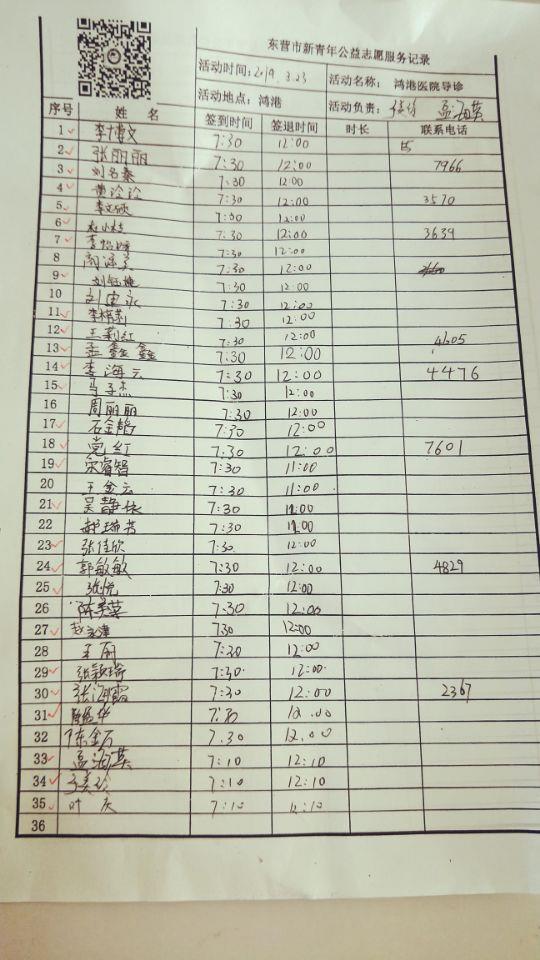 东营市新青年公益志愿服务记录
活动时间:2019.3.23 活动名称: 鸿港医院导诊
活动地点: 鸿港 活动负责: 孟海英
序号 姓 名 签到时间 签退时间 时长 联系电话
1 李博文 7:30 12:00
2 张丽丽 7:30 12:00 7966
3 刘名秦 7:30 12:00
4 黄沦沦 7:30 12:00 3570
5 李文硕 7:00 12:00
6 7:30 12:00 3639
7 7:30 12:00
8 7:30 12:00
9 7:30 12:00
10 7:30 12:00
11 李梢莉 7:30 12:00
12 王莉红 7:30 12:00
13 孟鑫鑫 7:30 12:00 4605
14 李海云 7:30 12:00 4476
15 马子杰 7:30 12:00
16 周丽丽 7:30 12:00
17 石金静 7:30 12:00
18 党红 7:30 12:00 7601
19 宋睿智 7:30 11:00
20 王金云 7:30 11:00
21 吴静 7:30 12:00
22 郝瑞芳 7:30 12:00
23 张佳欣 7:30 12:00
24 郭敏敏 7:30 12:00 4829
25 张悦 7:30 12:00
26 陈秀英 7:30 12:00
27 7:30 12:00
28 王丽 7:30 12:00
29 张颖琦 7:30 12:00
30 张海霞 7:30 12:00 2367
31 7:30 12:00
32 陈金石 7.30 12.00
33 孟海英 7:10 12:10
34 7:10 12:10
35 叶庆 7:10 12:10
36